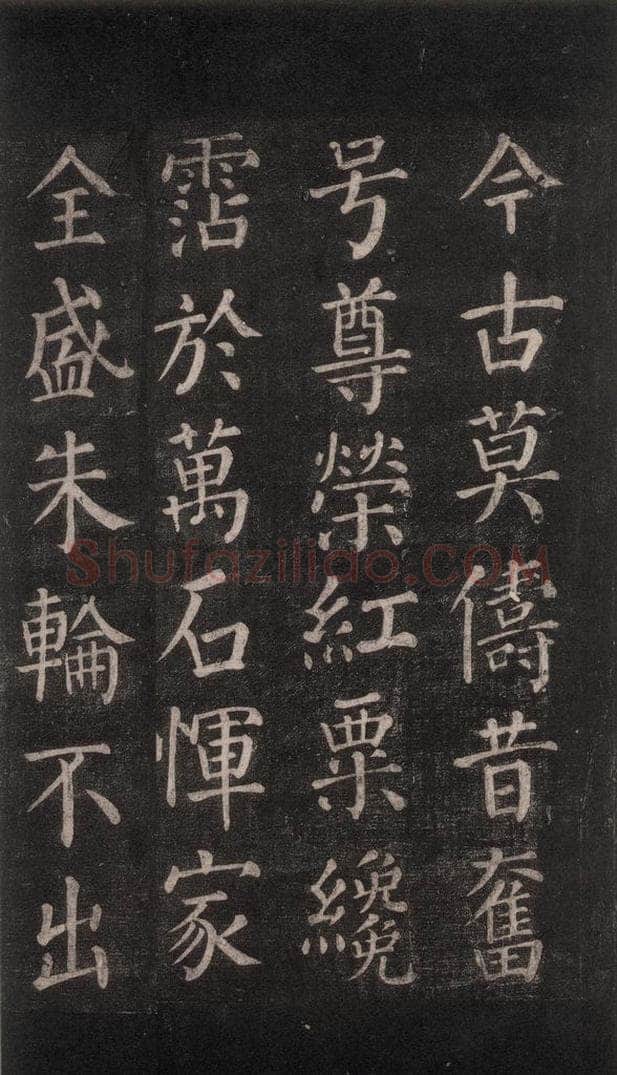 今古莫儔昔奮
号尊榮紅粟纔
霑於萬石惲家
全盛朱輪不出
Shufaziliao.COM